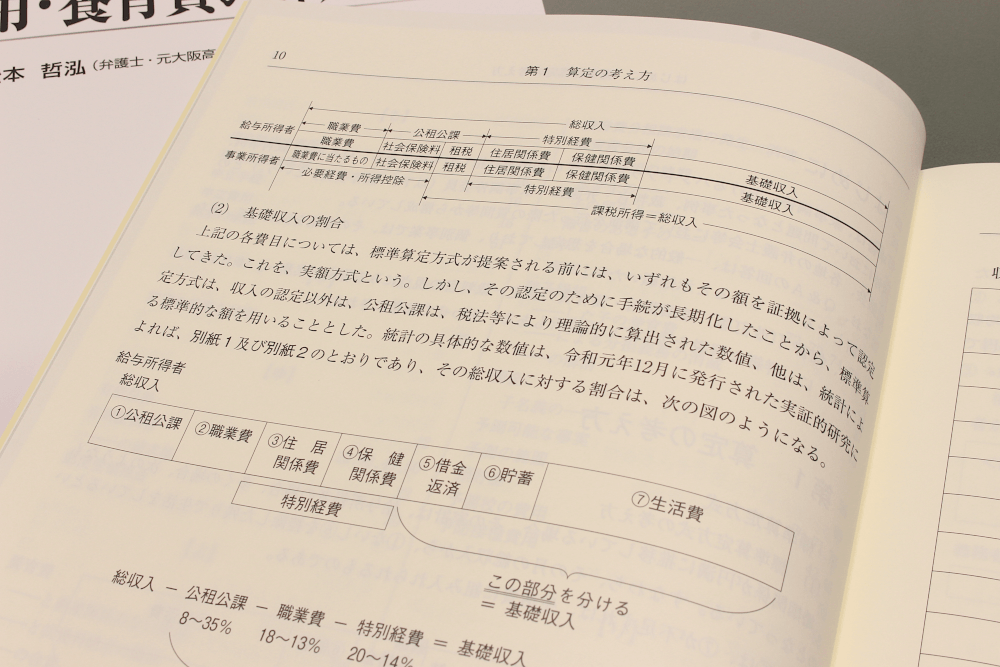 用・養育費の
本 哲泓（弁護士・元大阪高
10
第1 算定の考え方
総収入
職業費 公租公課 特別経費
給与所得者 職業費 社会保険料 租税 住居関係費 保健関係費 基礎収入
事業所得者 職業費に当たるもの 社会保険料 租税 住居関係費 保健関係費 基礎収入
必要経費・所得控除 特別経費
課税所得＝総収入
(2) 基礎収入の割合
上記の各費目については、標準算定方式が提案される前には、いずれもその額を証拠によって認定
してきた。これを、実額方式という。しかし、その認定のために手続が長期化したことから、標準算
定方式は、収入の認定以外は、公租公課は、税法等により理論的に算出された数値、他は、統計によ
る標準的な額を用いることとした。統計の具体的な数値は、令和元年12月に発行された実証的研究に
よれば、別紙1及び別紙2のとおりであり、その総収入に対する割合は、次の図のようになる。
給与所得者
総収入
①公租公課 ②職業費 ③住居関係費 ④保健関係費 ⑤借金返済 ⑥貯蓄 ⑦生活費
特別経費
この部分を分ける
＝ 基礎収入
総収入 － 公租公課 － 職業費 － 特別経費 ＝ 基礎収入
8〜35% 18〜13% 20〜14%